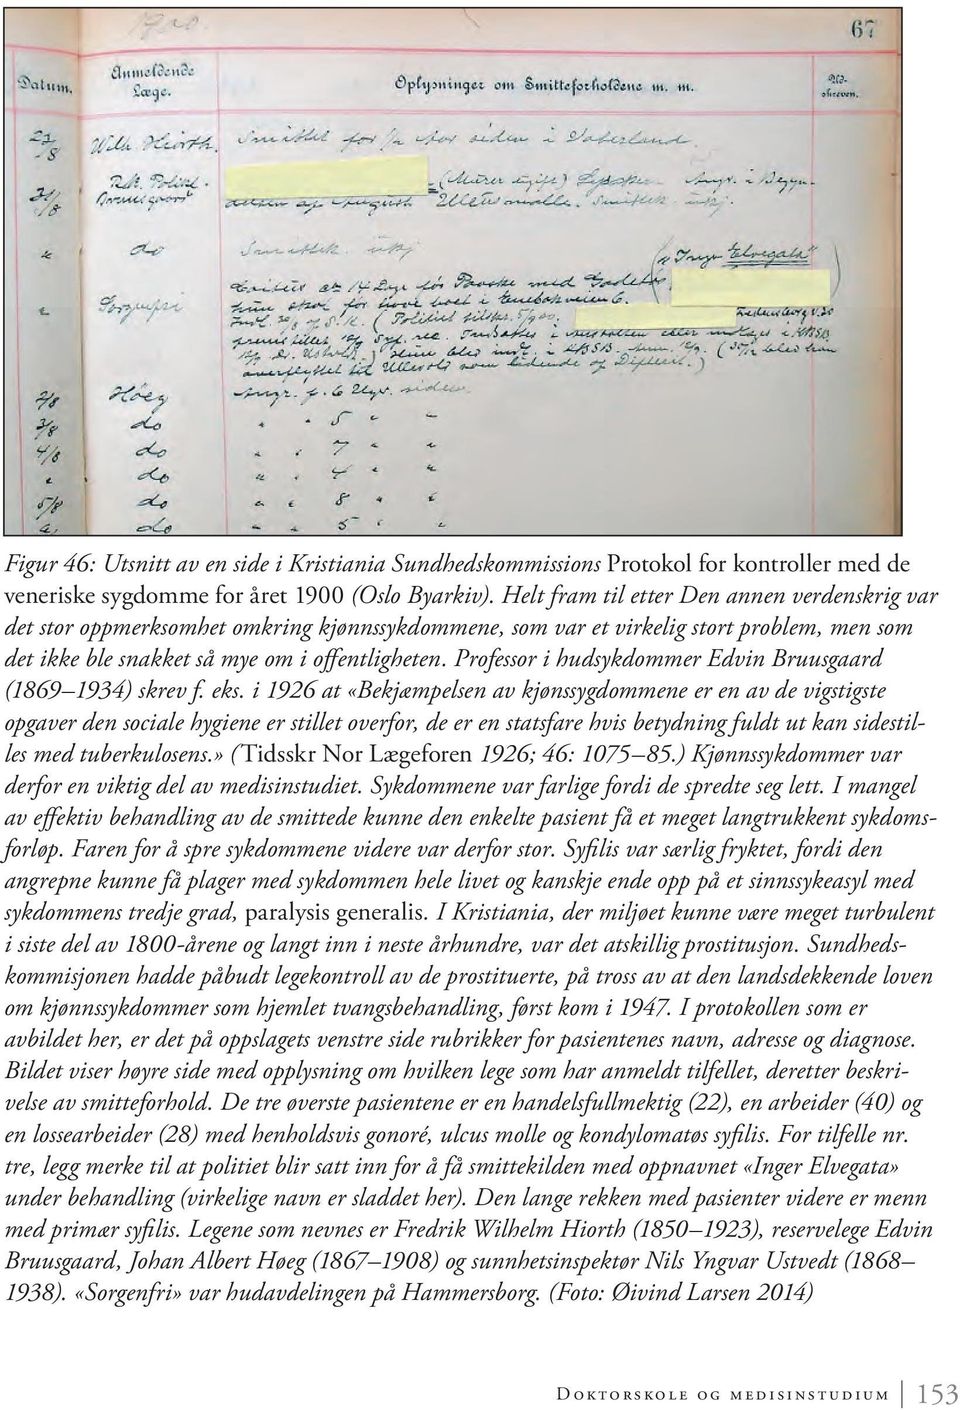 1900.
67
Datum. Anmeldende Læge. Oplysninger om Smitteforholdene m. m. Ud-skreven.
23/8 Wilh Hiorth. Smittet for 1/2 Aar siden i Vaterland.
31/8 R.h. Polikl. Bruusgaard (Murer Angr. i Begyn-
delsen af August Ulcus molle. Smittek. ukj.
" do Smittek. ukj „Inger Elvegata"
" Sorgenfri Coitus ca 14 Dage før med
hun skal før have boet i Enebakveien 6.
(Politiet tilskr. 5/9 00.
12/9 Dr. Ustvedt.) Hun blev indl. i
overflyttet til Ullevold som lidende af Difterit.)
2/8 Höeg Angr. f. 6 Ugr. siden
3/8 do " " 5 " "
4/8 do " " 7 " "
" do " " 4 " "
5/8 do " " 8 " "
" do " " 5 " "
Figur 46: Utsnitt av en side i Kristiania Sundhedskommissions Protokol for kontroller med de
veneriske sygdomme for året 1900 (Oslo Byarkiv). Helt fram til etter Den annen verdenskrig var
det stor oppmerksomhet omkring kjønnssykdommene, som var et virkelig stort problem, men som
det ikke ble snakket så mye om i offentligheten. Professor i hudsykdommer Edvin Bruusgaard
(1869–1934) skrev f. eks. i 1926 at «Bekjæmpelsen av kjønssygdommene er en av de vigstigste
opgaver den sociale hygiene er stillet overfor, de er en statsfare hvis betydning fuldt ut kan sidestil-
les med tuberkulosens.» (Tidsskr Nor Lægeforen 1926; 46: 1075–85.) Kjønnssykdommer var
derfor en viktig del av medisinstudiet. Sykdommene var farlige fordi de spredte seg lett. I mangel
av effektiv behandling av de smittede kunne den enkelte pasient få et meget langtrukkent sykdoms-
forløp. Faren for å spre sykdommene videre var derfor stor. Syfilis var særlig fryktet, fordi den
angrepne kunne få plager med sykdommen hele livet og kanskje ende opp på et sinnssykeasyl med
sykdommens tredje grad, paralysis generalis. I Kristiania, der miljøet kunne være meget turbulent
i siste del av 1800-årene og langt inn i neste århundre, var det atskillig prostitusjon. Sundheds-
kommisjonen hadde påbudt legekontroll av de prostituerte, på tross av at den landsdekkende loven
om kjønnssykdommer som hjemlet tvangsbehandling, først kom i 1947. I protokollen som er
avbildet her, er det på oppslagets venstre side rubrikker for pasientenes navn, adresse og diagnose.
Bildet viser høyre side med opplysning om hvilken lege som har anmeldt tilfellet, deretter beskri-
velse av smitteforhold. De tre øverste pasientene er en handelsfullmektig (22), en arbeider (40) og
en lossearbeider (28) med henholdsvis gonoré, ulcus molle og kondylomatøs syfilis. For tilfelle nr.
tre, legg merke til at politiet blir satt inn for å få smittekilden med oppnavnet «Inger Elvegata»
under behandling (virkelige navn er sladdet her). Den lange rekken med pasienter videre er menn
med primær syfilis. Legene som nevnes er Fredrik Wilhelm Hiorth (1850–1923), reservelege Edvin
Bruusgaard, Johan Albert Høeg (1867–1908) og sunnhetsinspektør Nils Yngvar Ustvedt (1868–
1938). «Sorgenfri» var hudavdelingen på Hammersborg. (Foto: Øivind Larsen 2014)
Doktorskole og medisinstudium | 153